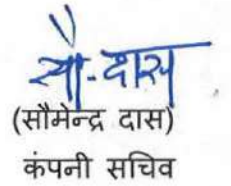 सौ-दास
(सौमेन्द्र दास)
कंपनी सचिव